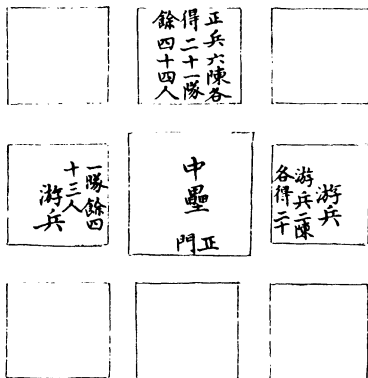 正兵六陳各
得二十一隊
餘四十四人
游兵
游兵二陳
各得二十
中壘
正門
一隊餘四
十三人
游兵